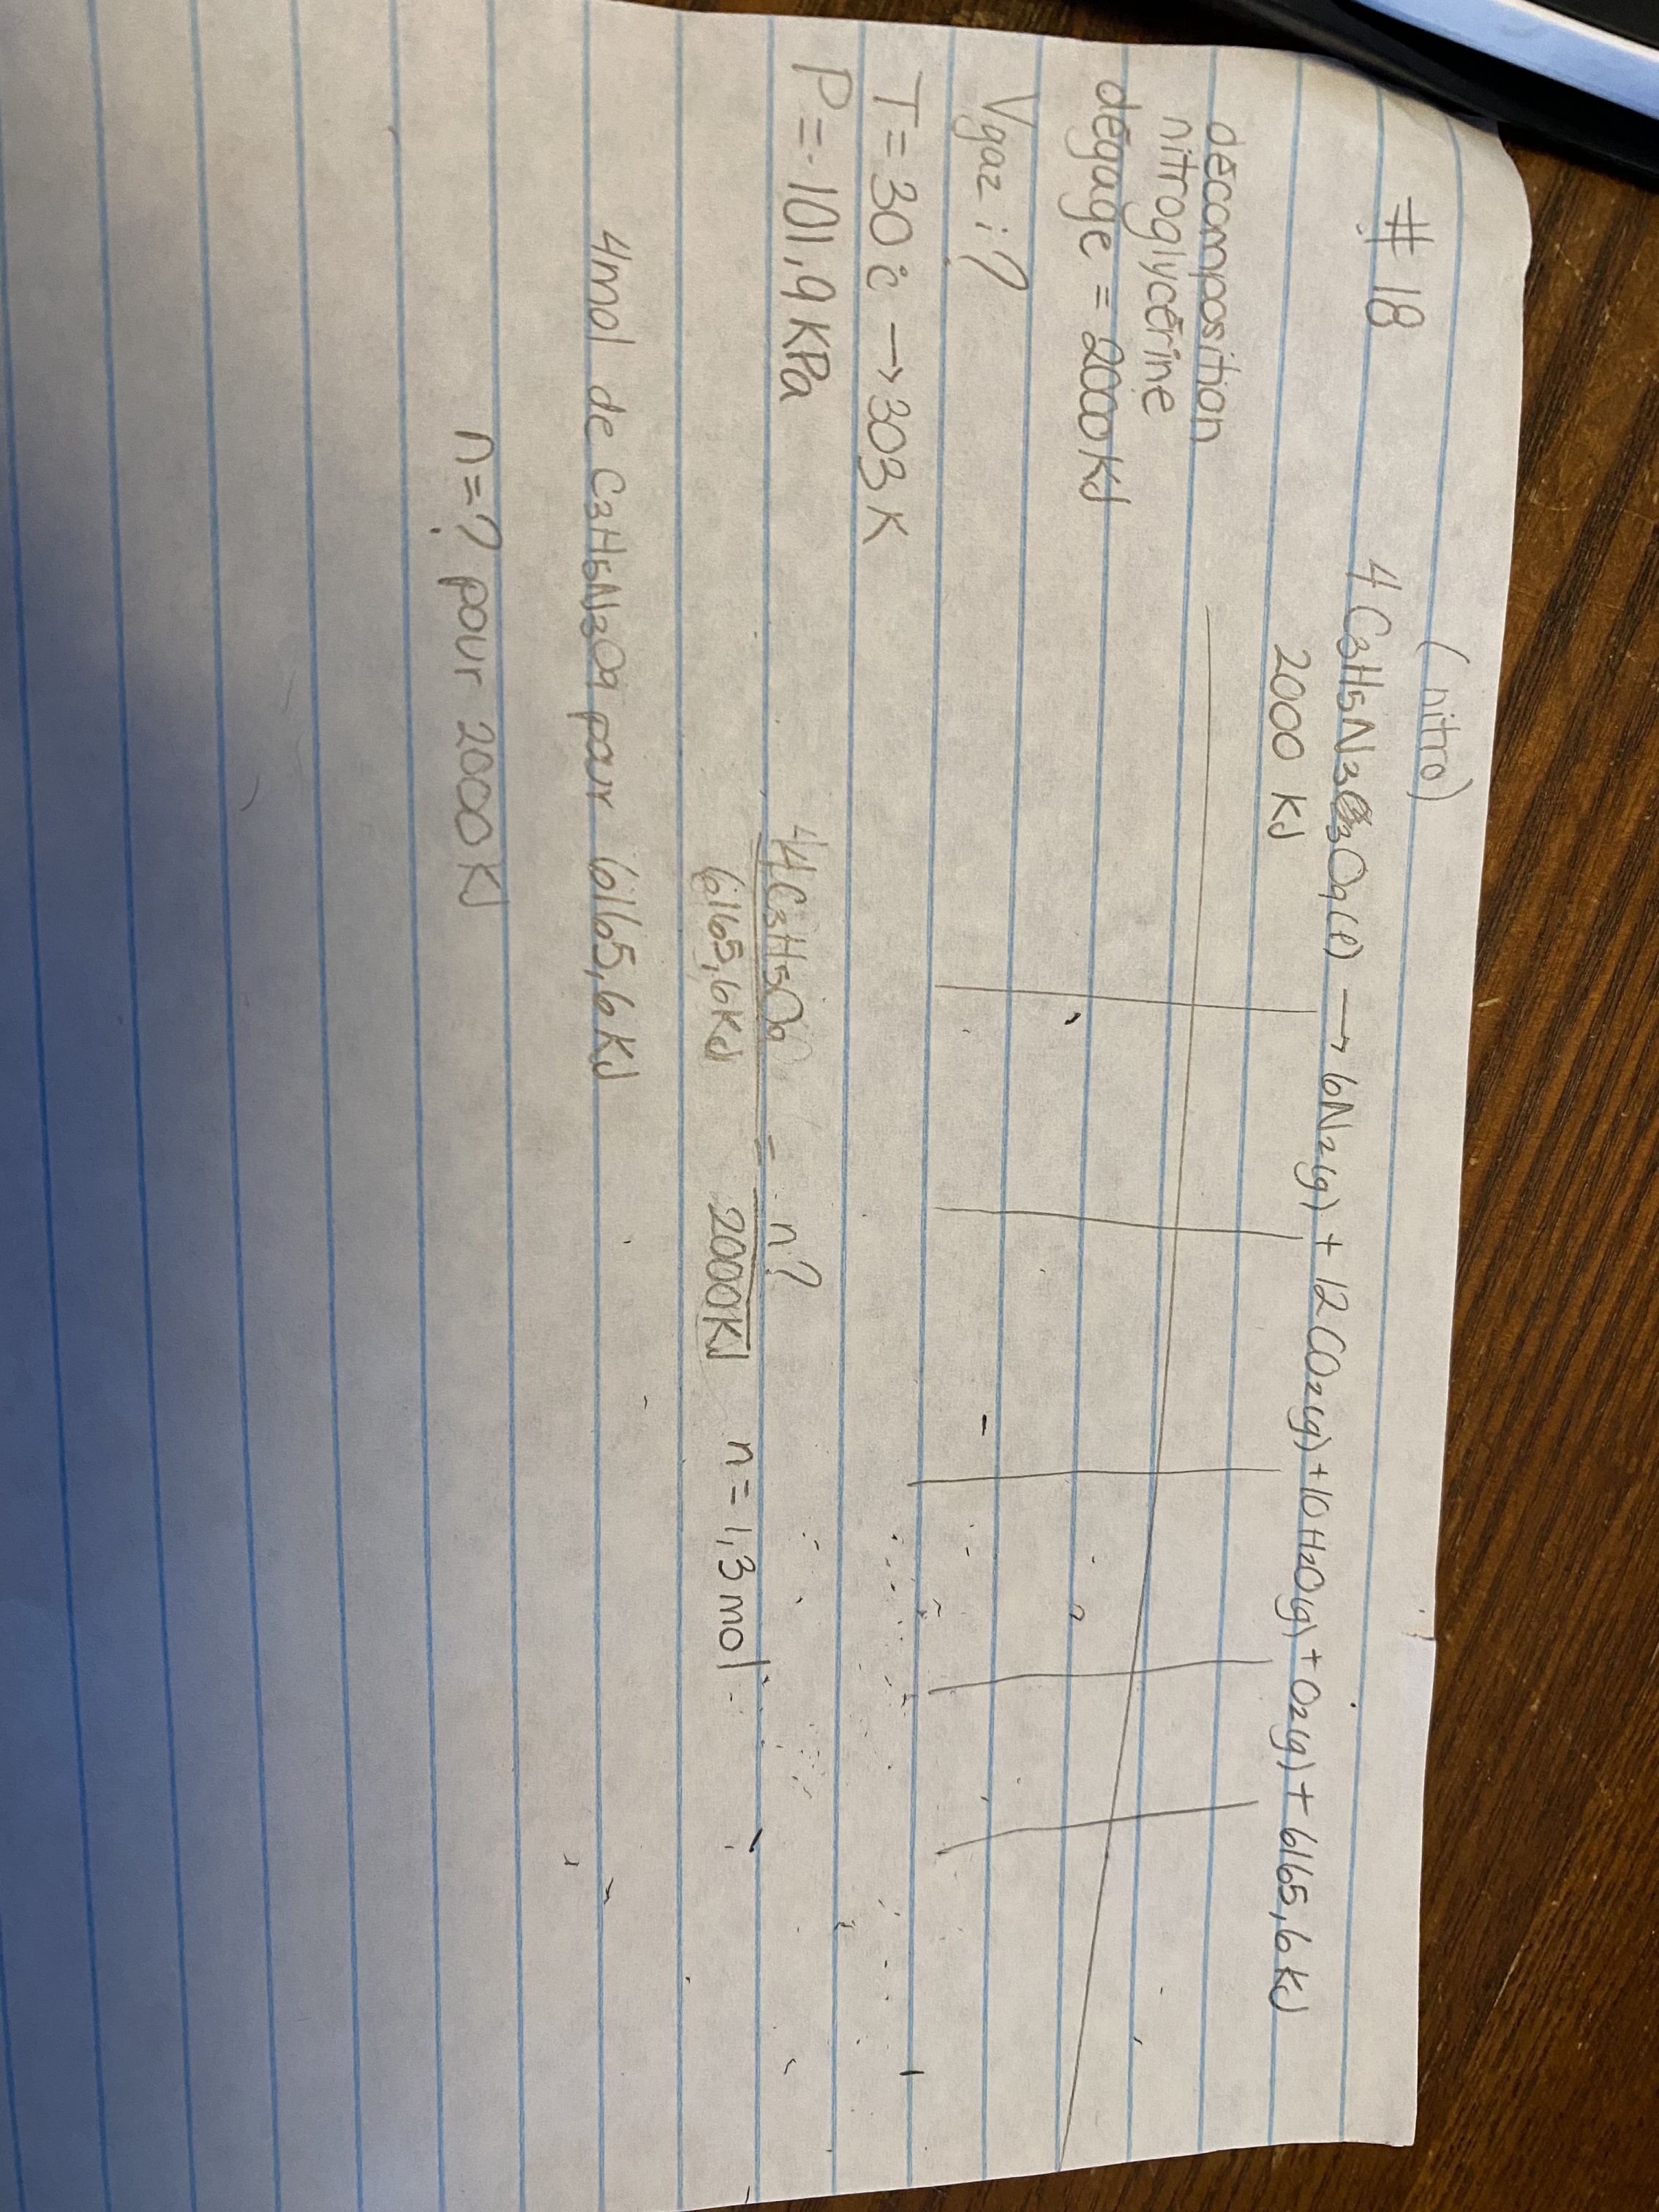 (nitro)
#18 4 C₃H₅N₃O₉(l) → 6N₂(g) + 12 CO₂(g) + 10 H₂O(g) + O₂(g) + 6165,6 KJ
2000 KJ
décomposition
nitroglycérine
dégage = 2000 KJ
Vgaz : ?
T = 30 °C → 303 K
P = 101,9 KPa
4 C₃H₅O₉ = n?
6165,6 KJ 2000 KJ n = 1,3 mol
4 mol de C₃H₅N₃O₉ pour 6165,6 KJ
n = ? pour 2000 KJ